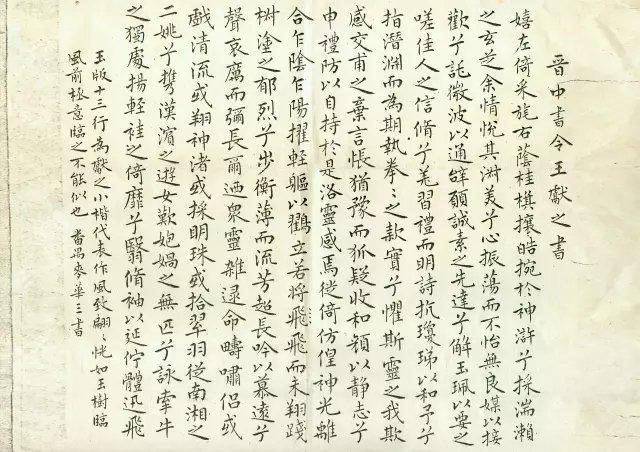 晉中書令王獻之書
嬉左倚采旄右蔭桂旗攘皓捥於神滸兮採湍瀨
之玄芝余情悅其淑美兮心振蕩而不怡無良媒以接
歡兮託微波以通辭願誠素之先達兮解玉珮以要之
嗟佳人之信脩兮羌習禮而明詩抗瓊珶以和予兮
指潛淵而為期執拳〻之款實兮懼斯靈之我欺
感交甫之棄言悵猶豫而狐疑收和顏以靜志兮
申禮防以自持於是洛靈感焉徙倚仿偟神光離
合乍陰乍陽擢輕軀以鸖立若將飛飛而未翔踐
椒塗之郁烈兮步衡薄而流芳超長吟以慕遠兮
聲哀厲而彌長爾迺衆靈雜遝命疇嘯侶或
戲清流或翔神渚或採明珠或拾翠羽從南湘之
二姚兮攜漢濱之遊女歎匏媧之無匹兮詠牽牛
之獨處揚輕袿之倚靡兮翳脩袖以延佇體迅飛
玉版十三行為獻之小楷代表作風致翩〻恍如玉樹臨
風前極意臨之不能似也 番禺麥華三書